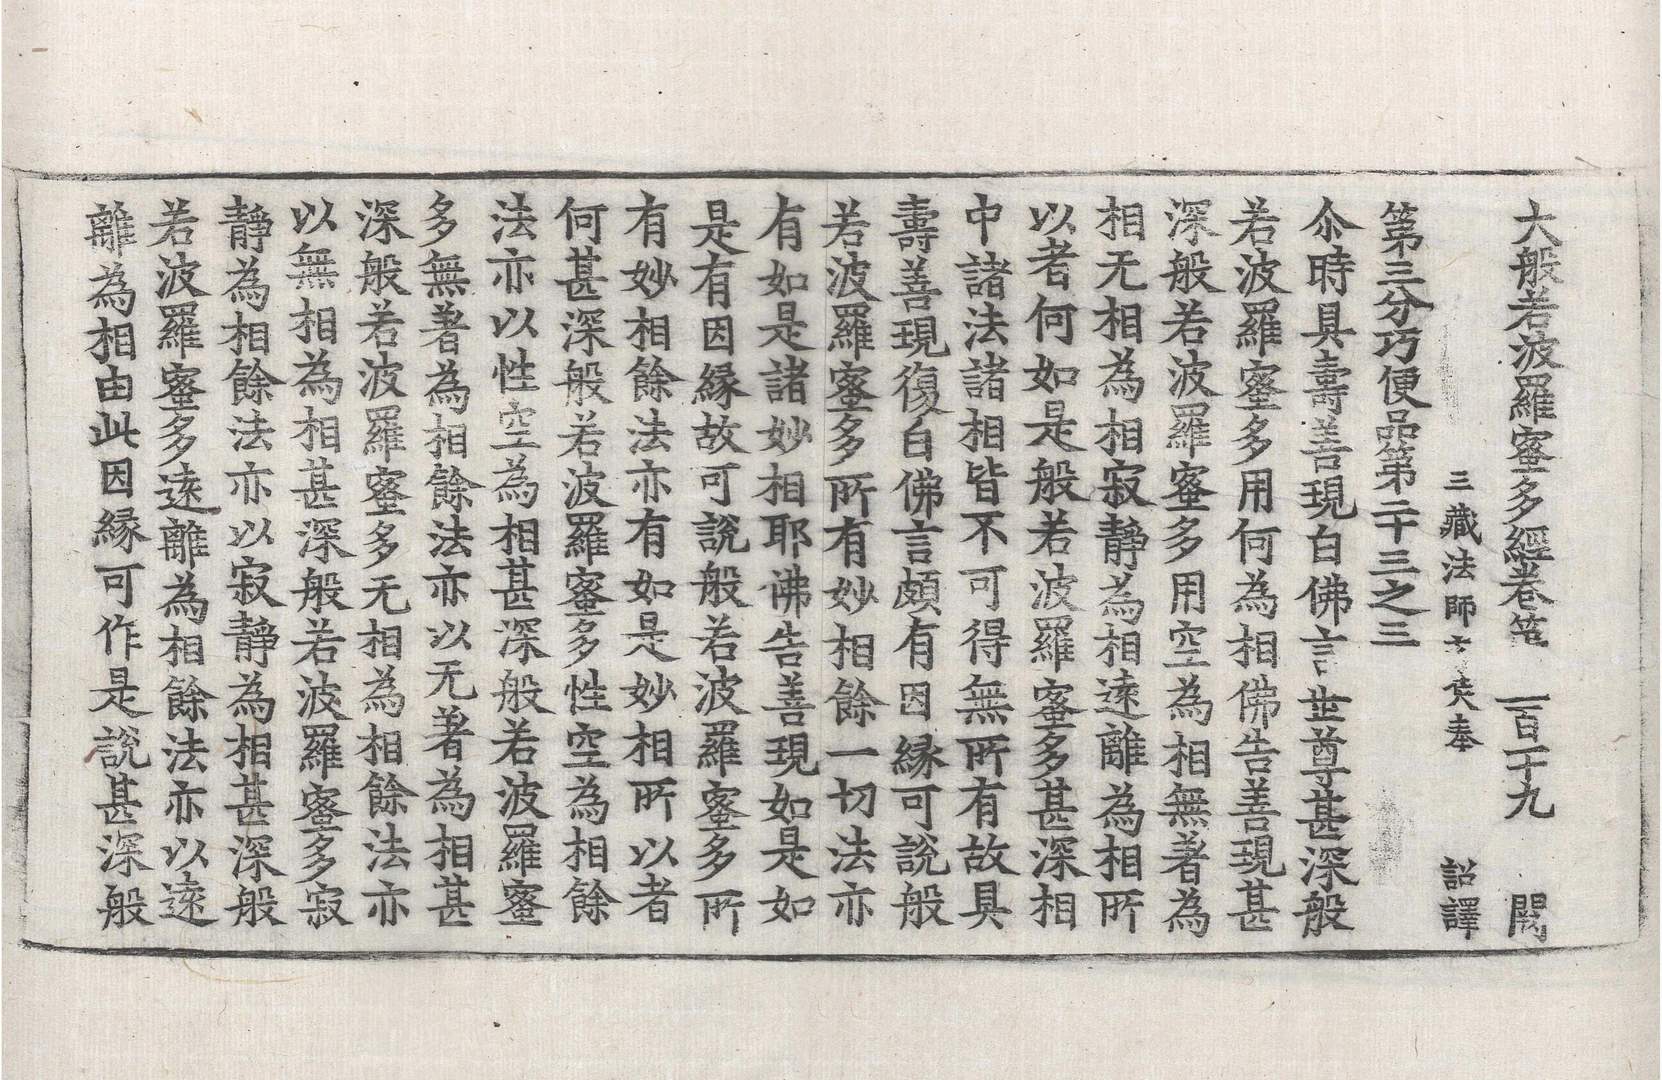 大般若波羅蜜多經卷第　一百十九　闕
三藏法師玄奘奉　詔譯
第三分巧便品第二十三之三
尒時具壽善現白佛言世尊甚深般
若波羅蜜多用何為相佛告善現甚
深般若波羅蜜多用空為相無著為
相无相為相寂靜為相遠離為相所
以者何如是般若波羅蜜多甚深相
中諸法諸相皆不可得無所有故具
壽善現復白佛言頗有因緣可說般
若波羅蜜多所有妙相餘一切法亦
有如是諸妙相耶佛告善現如是如
是有因緣故可說般若波羅蜜多所
有妙相餘法亦有如是妙相所以者
何甚深般若波羅蜜多性空為相餘
法亦以性空為相甚深般若波羅蜜
多無著為相餘法亦以无著為相甚
深般若波羅蜜多无相為相餘法亦
以無相為相甚深般若波羅蜜多寂
靜為相餘法亦以寂靜為相甚深般
若波羅蜜多遠離為相餘法亦以遠
離為相由此因緣可作是說甚深般